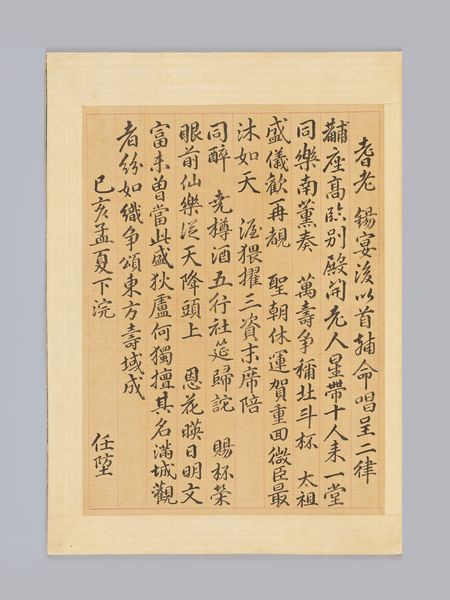 耆老 錫宴後以首輔命唱呈二律
黼座高臨別殿開老人星帶十人來一堂
同樂南薰奏 萬壽爭稱北斗杯 太祖
盛儀歡再覩 聖朝休運賀重回微臣最
沐如天 渥猥擢三資末席陪
同醉 堯樽酒五行社筵歸詫 賜杯榮
眼前仙樂從天降頭上 恩花暎日明文
富未曾當此盛狄盧何獨擅其名滿城觀
者紛如織爭頌東方壽域成
己亥孟夏下浣
任埅